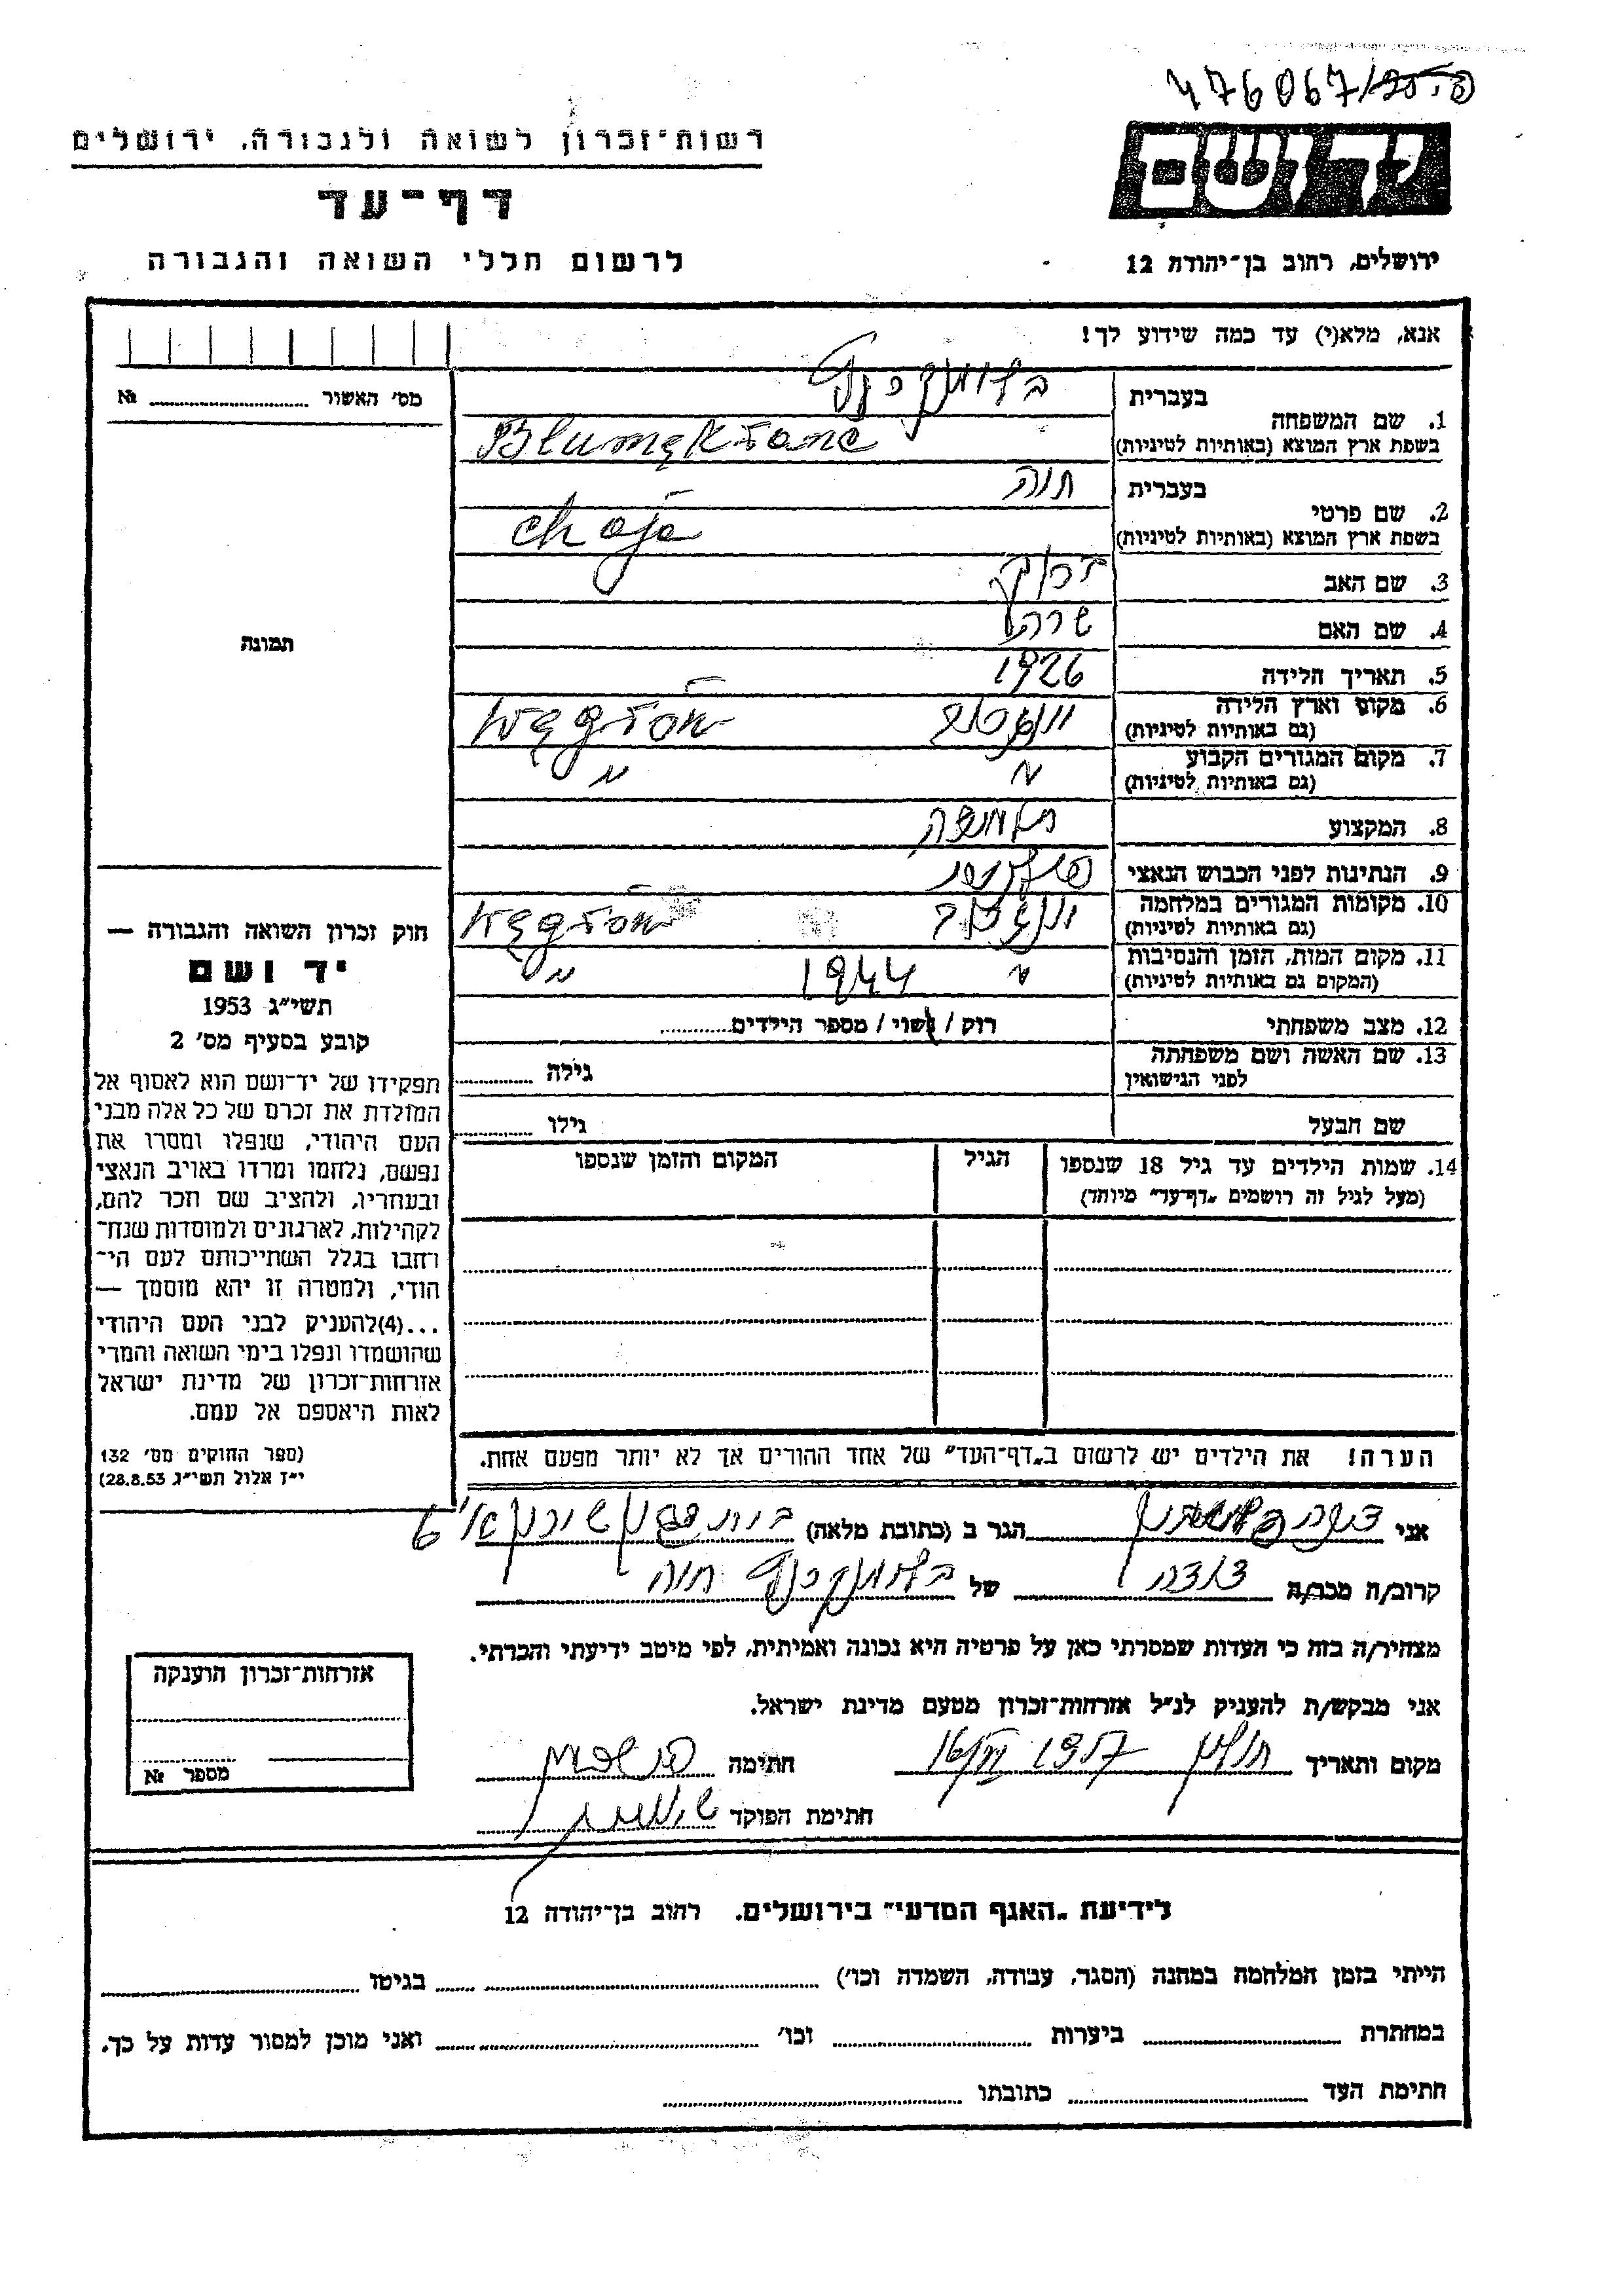 476067/
רשות־זכרון לשואה ולגבורה. ירושלים
דף־עד
לרשום חללי השואה והגבורה
יד ושם
ירושלים, רחוב בן־יהודה 12
אנא, מלא(י) עד כמה שידוע לך!
מס׳ האשור ........ №
תמונה
חוק זכרון השואה והגבורה —
יד ושם
תשי״ג 1953
קובע בסעיף מס׳ 2
תפקידו של יד־ושם הוא לאסוף אל
המולדת את זכרם של כל אלה מבני
העם היהודי, שנפלו ומסרו את
נפשם, נלחמו ומרדו באויב הנאצי
ובעוזריו, ולהציב שם וזכר להם,
לקהילות, לארגונים ולמוסדות שנח־
רחבו בגלל השתייכותם לעם הי־
הודי, ולמטרה זו יהא מוסמך —
...(4)להעניק לבני העם היהודי
שהושמדו ונפלו בימי השואה והמרי
אזרחות־זכרון של מדינת ישראל
לאות היאספם אל עמם.
(ספר החוקים מס׳ 132
י״ז אלול תשי״ג 28.8.53)
1. שם המשפחה
בעברית
בשפת ארץ המוצא (באותיות לטיניות) Blumękranc
2. שם פרטי
בעברית חוה
בשפת ארץ המוצא (באותיות לטיניות) chaja
3. שם האב
4. שם האם שרה
5. תאריך הלידה 1926
6. מקום וארץ הלידה
(גם באותיות לטיניות) Węgrów
7. מקום המגורים הקבוע
(גם באותיות לטיניות) " "
8. המקצוע
9. הנתינות לפני הכבוש הנאצי
10. מקומות המגורים במלחמה
(גם באותיות לטיניות) Węgrów
11. מקום המות, הזמן והנסיבות
(המקום גם באותיות לטיניות) " 1944 "
12. מצב משפחתי רוק / נשוי / מספר הילדים........
13. שם האשה ושם משפחתה
לפני הנישואין גילה ........
שם הבעל גילו ........
14. שמות הילדים עד גיל 18 שנספו הגיל המקום והזמן שנספו
(מעל לגיל זה רושמים „דף־עד״ מיוחד)
הערה! את הילדים יש לרשום ב„דף־העד״ של אחד ההורים אך לא יותר מפעם אחת.
אני הגר ב (כתובת מלאה)
קרוב/ה מכר/ה דודה של חוה
מצהיר/ה בזה כי העדות שמסרתי כאן על פרטיה היא נכונה ואמיתית, לפי מיטב ידיעתי והכרתי.
אני מבקש/ת להעניק לנ״ל אזרחות־זכרון מטעם מדינת ישראל.
מקום ותאריך חולון חתימה
חתימת הפוקד
אזרחות־זכרון הוענקה
מספר №
לידיעת „האגף המדעי״ בירושלים. רחוב בן־יהודה 12
הייתי בזמן המלחמה במחנה (הסגר, עבודה, השמדה וכו׳) ........ בגיטו ........
במחתרת ........ ביערות ........ וכו׳ ........ ואני מוכן למסור עדות על כך.
חתימת העד ........ כתובתו ........